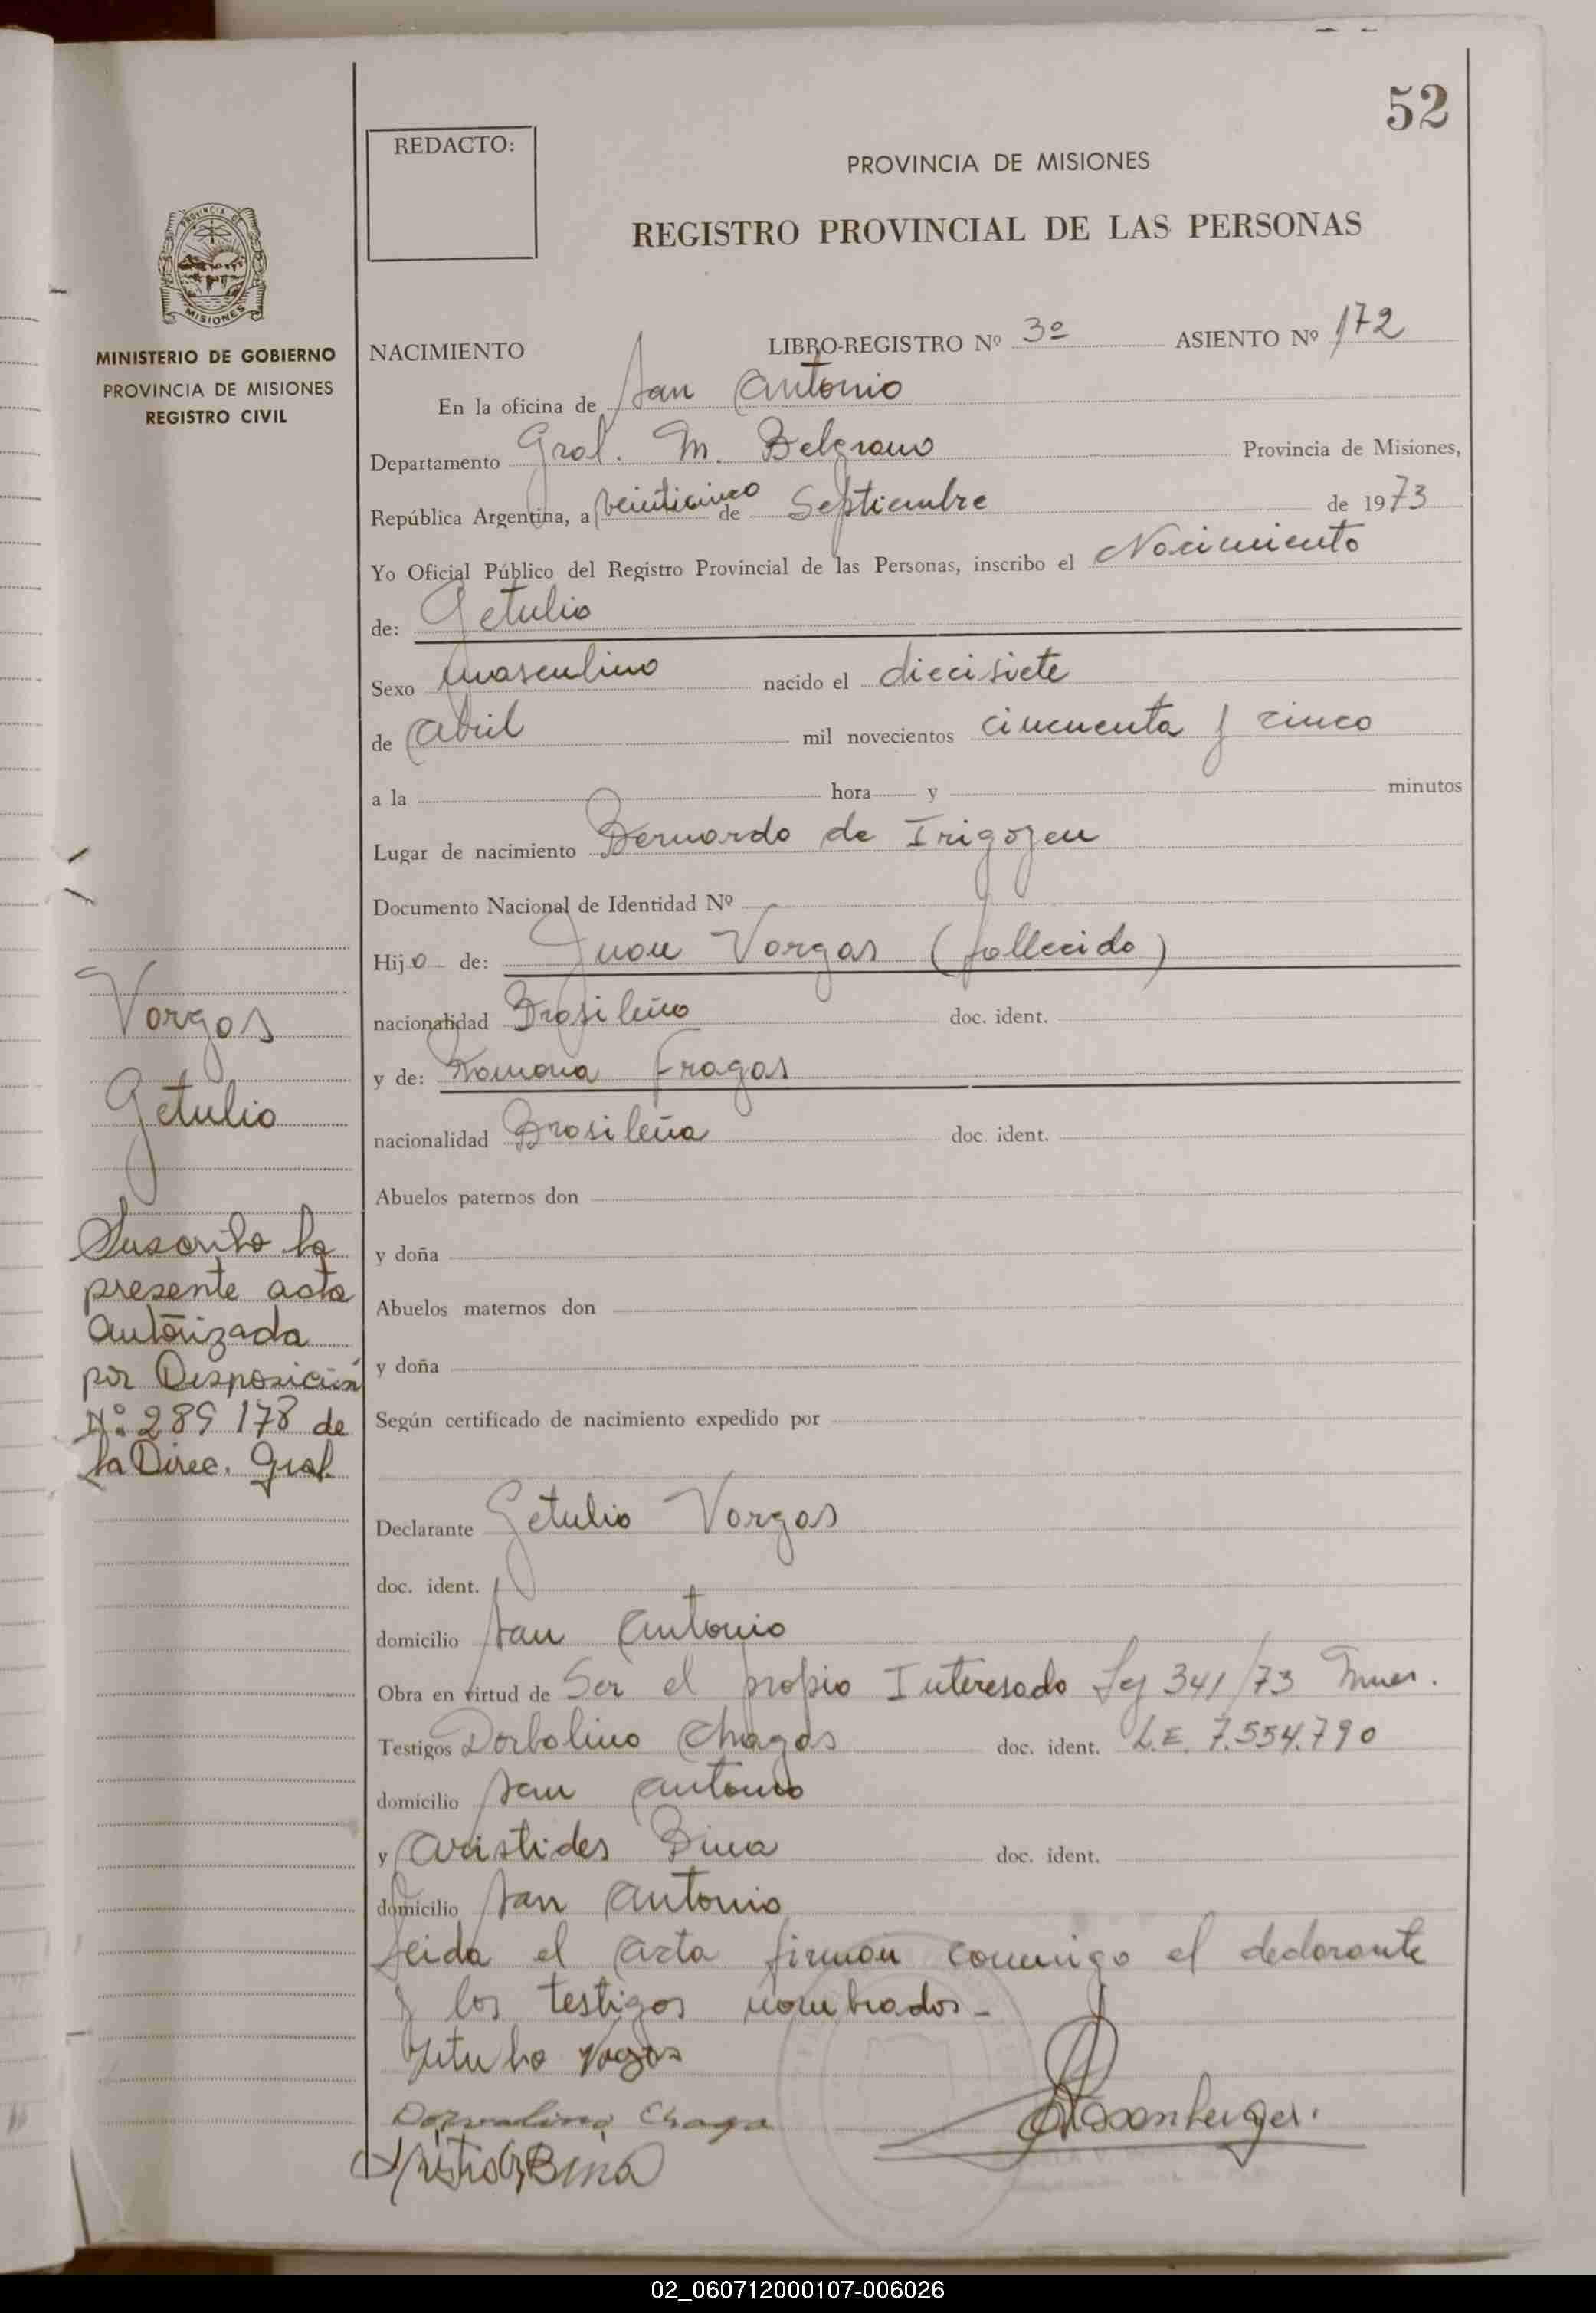 52
REDACTO:
PROVINCIA DE MISIONES
REGISTRO PROVINCIAL DE LAS PERSONAS
PROVINCIA DE
MISIONES
MINISTERIO DE GOBIERNO
PROVINCIA DE MISIONES
REGISTRO CIVIL
NACIMIENTO LIBRO-REGISTRO Nº 3º ASIENTO Nº 172
En la oficina de San Antonio
Departamento Gral. M. Belgrano Provincia de Misiones,
República Argentina, a veinticinco de Septiembre de 1973
Yo Oficial Público del Registro Provincial de las Personas, inscribo el Nacimiento
de: Getulio
Sexo masculino nacido el diecisiete
de Abril mil novecientos cincuenta y cinco
a la hora y minutos
Lugar de nacimiento Bernardo de Irigoyen
Documento Nacional de Identidad Nº
Hijo de: Juan Vargas (fallecido)
nacionalidad Brasileño doc. ident.
y de: Ramona Fragas
nacionalidad Brasileña doc. ident.
Abuelos paternos don
y doña
Abuelos maternos don
y doña
Según certificado de nacimiento expedido por
Declarante Getulio Vargas
doc. ident.
domicilio San Antonio
Obra en virtud de Ser el propio Interesado Ley 341/73
Testigos Dorbalino Chagas doc. ident. L.E. 7.554.790
domicilio San Antonio
y Aristides Bina doc. ident.
domicilio San Antonio
Leida el Acta firman conmigo el declarante
y los testigos nombrados-
Vargas
Getulio
Suscribo la
presente acta
Autorizada
por Disposición
Nº 289 178 de
la Direc. Gral.
Getulio Vargas
Dorvalino Chaga
Bina
02_060712000107-006026